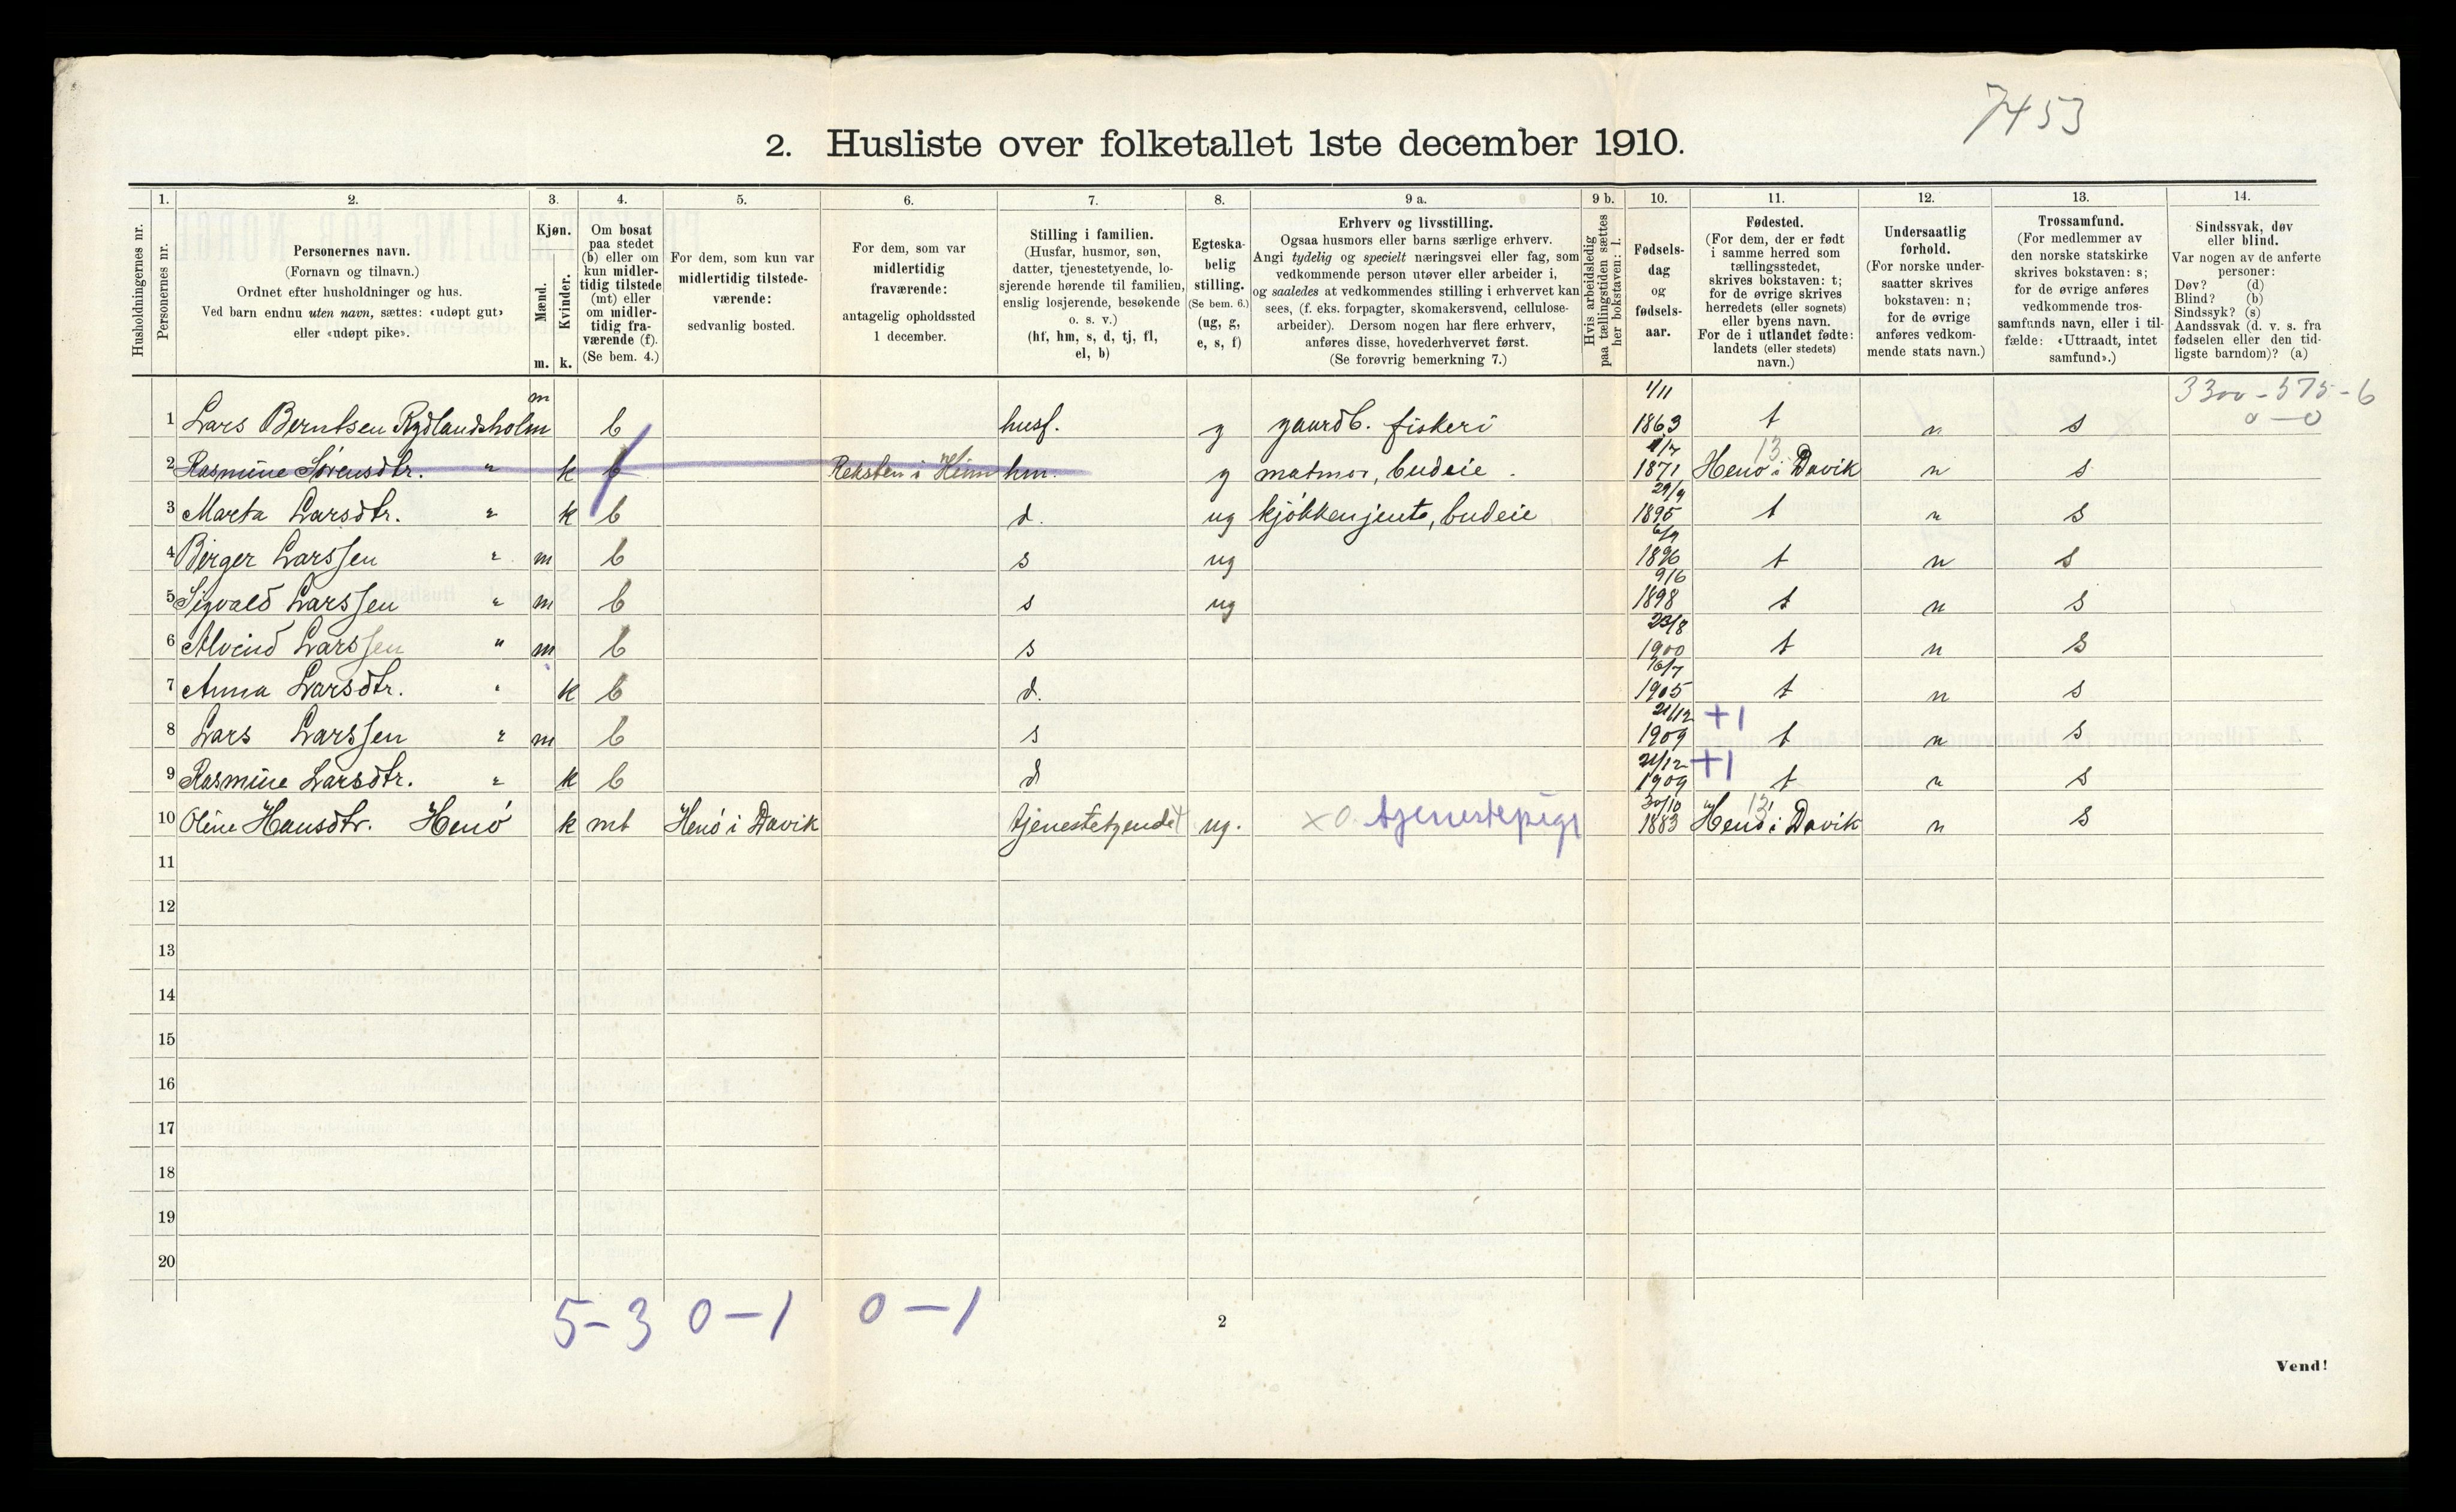 7453
2. Husliste over folketallet 1ste december 1910.
Husholdningernes nr.
1.
Personernes nr.
2.
Personernes navn.
(Fornavn og tilnavn.)
Ordnet efter husholdninger og hus.
Ved barn endnu uten navn, sættes: «udøpt gut»
eller «udøpt pike».
3.
Kjøn.
Mænd.
Kvinder.
m. k.
4.
Om bosat
paa stedet
(b) eller om
kun midler-
tidig tilstede
(mt) eller
om midler-
tidig fra-
værende (f).
(Se bem. 4.)
5.
For dem, som kun var
midlertidig tilstede-
værende:
sedvanlig bosted.
6.
For dem, som var
midlertidig
fraværende:
antagelig opholdssted
1 december.
7.
Stilling i familien.
(Husfar, husmor, søn,
datter, tjenestetyende, lo-
sjerende hørende til familien,
enslig losjerende, besøkende
o. s. v.)
(hf, hm, s, d, tj, fl,
el, b)
8.
Egteska-
belig
stilling.
(Se bem. 6.)
(ug, g,
e, s, f)
9 a.
Erhverv og livsstilling.
Ogsaa husmors eller barns særlige erhverv.
Angi tydelig og specielt næringsvei eller fag, som
vedkommende person utøver eller arbeider i,
og saaledes at vedkommendes stilling i erhvervet kan
sees, (f. eks. forpagter, skomakersvend, cellulose-
arbeider). Dersom nogen har flere erhverv,
anføres disse, hovederhvervet først.
(Se forøvrig bemerkning 7.)
9 b.
Hvis arbeidsledig
paa tællingstiden sættes
her bokstaven: l.
10.
Fødsels-
dag
og
fødsels-
aar.
11.
Fødested.
(For dem, der er født
i samme herred som
tællingsstedet,
skrives bokstaven: t;
for de øvrige skrives
herredets (eller sognets)
eller byens navn.
For de i utlandet fødte:
landets (eller stedets)
navn.)
12.
Undersaatlig
forhold.
(For norske under-
saatter skrives
bokstaven: n;
for de øvrige
anføres vedkom-
mende stats navn.)
13.
Trossamfund.
(For medlemmer av
den norske statskirke
skrives bokstaven: s;
for de øvrige anføres
vedkommende tros-
samfunds navn, eller i til-
fælde: «Uttraadt, intet
samfund».)
14.
Sindssvak, døv
eller blind.
Var nogen av de anførte
personer:
Døv? (d)
Blind? (b)
Sindssyk? (s)
Aandssvak (d. v. s. fra
fødselen eller den tid-
ligste barndom)? (a)
3300-575-6
0-0
1 Lars Berntsen Rydlandsholm m b husf. g gaardb. fiskeri 1/11 1863 t n s
2 Rasmine Sørensdtr. " k b Reksten i Kinn hm. g matmor, budeie. 1/7 1871 13 Henø i Davik n s
3 Marta Larsdtr. " k b d. ug kjøkkenjente, budeie 29/9 1895 t n s
4 Birger Larssen " m b s ug 6/9 1896 t n s
5 Sigvald Larssen " m b s ug 9/6 1898 t n s
6 Alvind Larssen " m b s 23/8 1900 t n s
7 Anna Larsdtr. " k b d. 16/7 1905 t n s
8 Lars Larssen " m b s 21/12 1909 +1 t n s
9 Rasmine Larsdtr. " k b d 21/12 1909 +1 t n s
10 Oline Hansdtr. Henø k mt Henø i Davik tjenestetyende ug. x0 tjenestepige 30/10 1883 13 Henø i Davik n s
11
12
13
14
15
16
17
18
19
20
5-3 0-1 0-1
2
Vend!